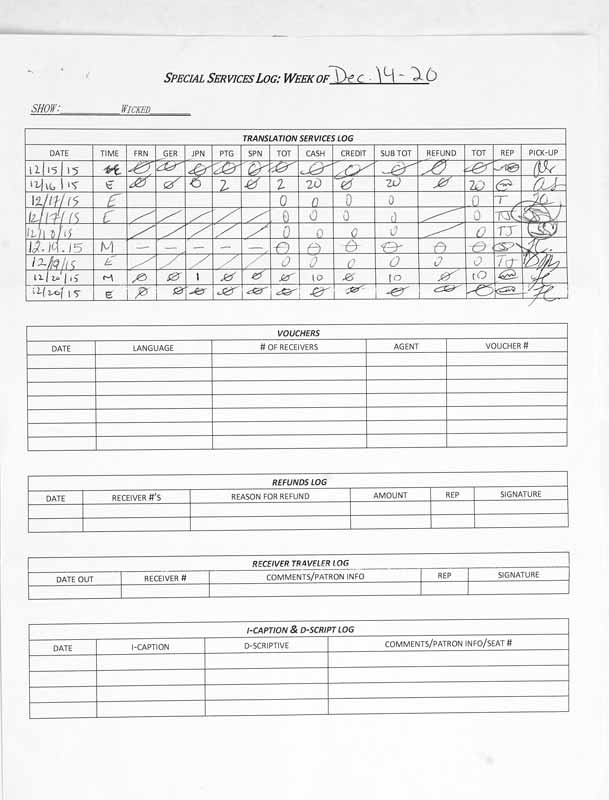 SPECIAL SERVICES LOG: WEEK OF Dec. 14-20
SHOW: WICKED
TRANSLATION SERVICES LOG
DATE TIME FRN GER JPN PTG SPN TOT CASH CREDIT SUB TOT REFUND TOT REP PICK-UP
12/15/15 Ø Ø Ø Ø Ø Ø Ø Ø Ø Ø Ø
12/16/15 E Ø Ø 0 2 Ø 2 20 Ø 20 Ø 20
12/17/15 E 0 0 0 0 0 T
12/17/15 E 0 0 0 0 0 TJ
12/18/15 0 0 0 0 0 TJ
12.19.15 M – – – – – Ø Ø Ø Ø Ø Ø
12/9/15 E 0 0 0 0 0 TJ
12/20/15 M Ø Ø 1 Ø Ø Ø 10 Ø 10 Ø 10
12/20/15 E Ø Ø Ø Ø Ø Ø Ø Ø Ø Ø Ø
VOUCHERS
DATE LANGUAGE # OF RECEIVERS AGENT VOUCHER #
REFUNDS LOG
DATE RECEIVER #'S REASON FOR REFUND AMOUNT REP SIGNATURE
RECEIVER TRAVELER LOG
DATE OUT RECEIVER # COMMENTS/PATRON INFO REP SIGNATURE
I-CAPTION & D-SCRIPT LOG
DATE I-CAPTION D-SCRIPTIVE COMMENTS/PATRON INFO/SEAT #